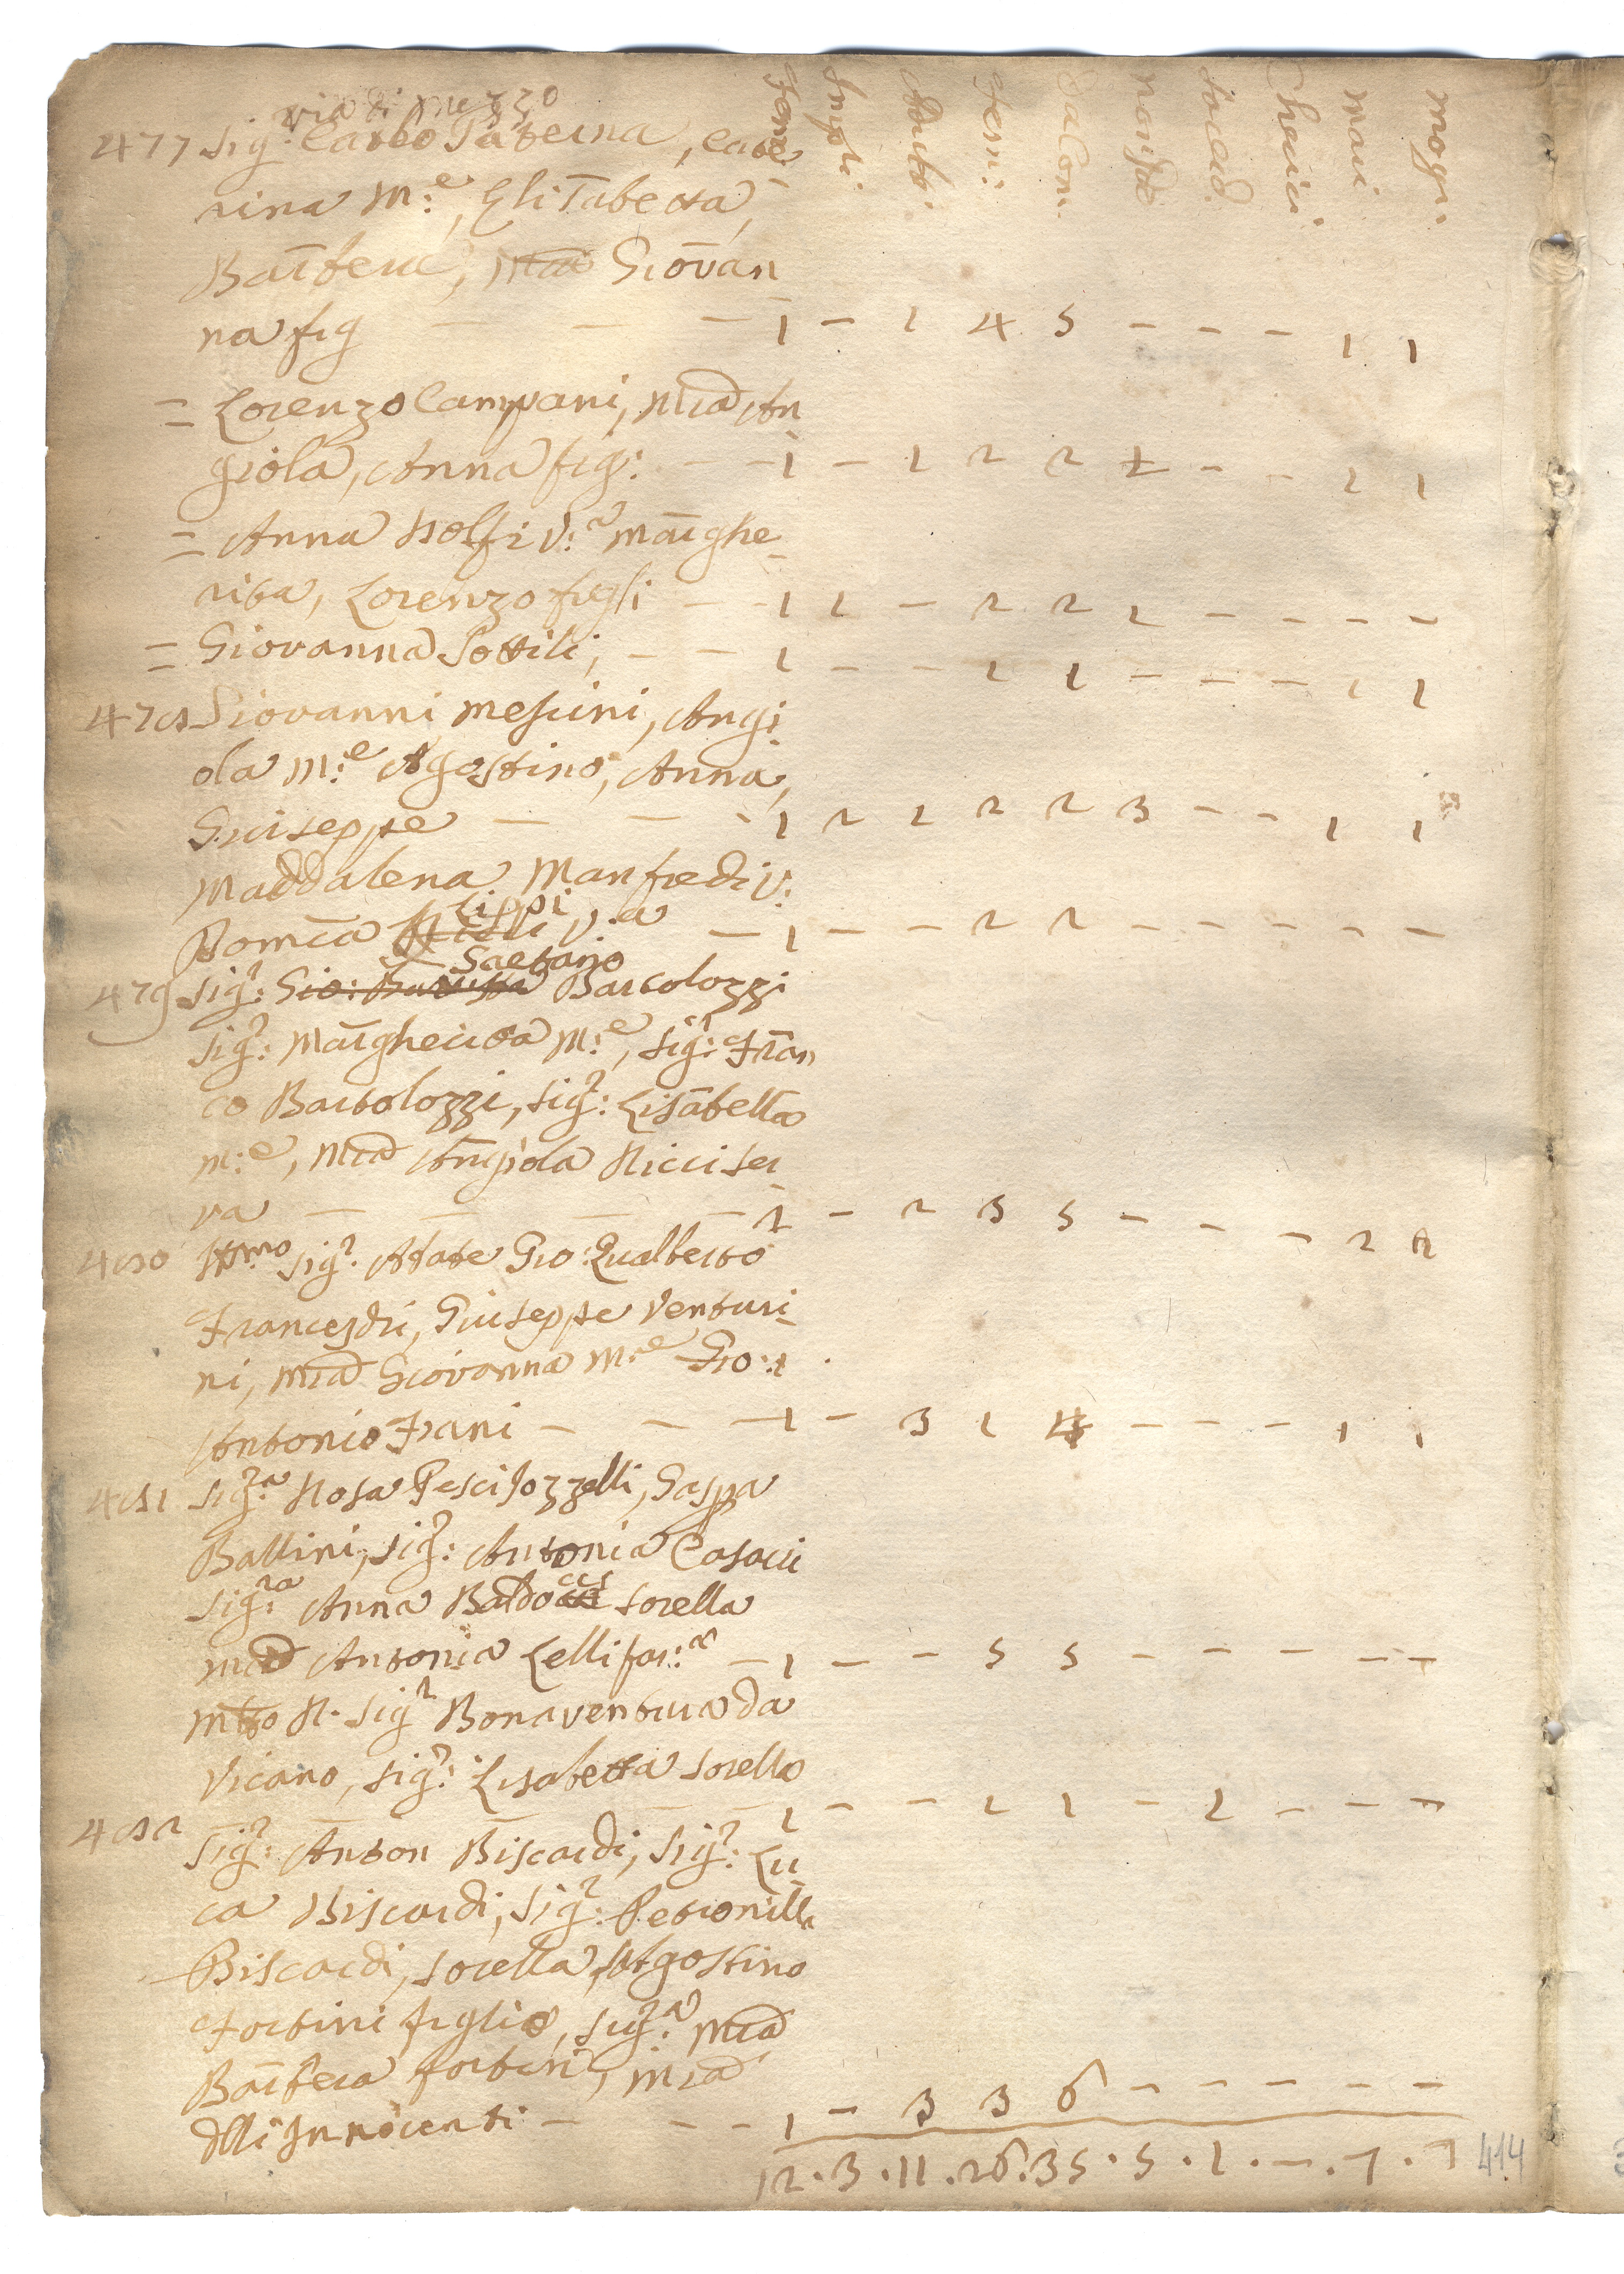 via di mezzo
fem: Ingli. Adulti. fem: da Com. non da sacerd. Cherici. mari. mogi:
477 Sig:r Carlo Taterna, Cate
rina M:e, Elisabetta,
Barbera, Mad Giovan
na fig — — — 1 — 1 4 5 — — — 1 1
= Lorenzo Campani, Mad An
giola, Anna fig: — — 1 — 1 2 2 1 — — 1 1
= Anna Nolfi V:a Marghe
rita, Lorenzo figli — — 1 1 — 2 2 1 — — — —
= Giovanna Sottili, — — 1 — — 1 1 — — — 1 1
478 Giovanni Mescini, Angi
ola M:e Agostino, Anna,
Giuseppe — — - 1 2 1 2 2 3 — — - 1 1
Maddalena Manfredi V:
Domca Lippi V:a — 1 — — 2 2 — — — — —
479 Sig:r Gio: Batista Gaetano Bartolozzi
Sig:r Margherita M:e, Sig:r Fran
co Bartolozzi, Sig:r Lisabetta
M:e, Mad Angiola Ricci ser
va — — — — 1 — 2 3 5 — — — 2 2
480 Ill:mo Sig:r Abate Gio: Gualberto
Franceschi, Giuseppe Venturi
ni, Mad Giovanna M:e Gio:
Antonio Frani — — — 1 — 3 1 4 — — — 1 1
481 Sig:ra Rosa Pesci Gozzelli, Gaspa
Ballini, Sig:r Antonia Casacci
Sig:ra Anna Baldocci sorella
Mad Antonia Lelli ser:a — 1 — — 5 5 — — — — —
Mto R. Sig:r Bonaventura da
Vicano, Sig:r Lisabetta sorella
— — 1 — — 1 1 — 1 — — —
482 Sig:r Anton Biscardi, Sig:r Lu
ca Biscardi, Sig:r Petronilla
Biscardi, sorella, Agostino
Fortini figlio, Sig:ra Mad
Barbera Fortini, Mad
dlli Innocenti — — — 1 — 3 3 6 — — — — —
12 . 3 . 11 . 26 . 35 . 5 . 1 . — . 7 . 7
414